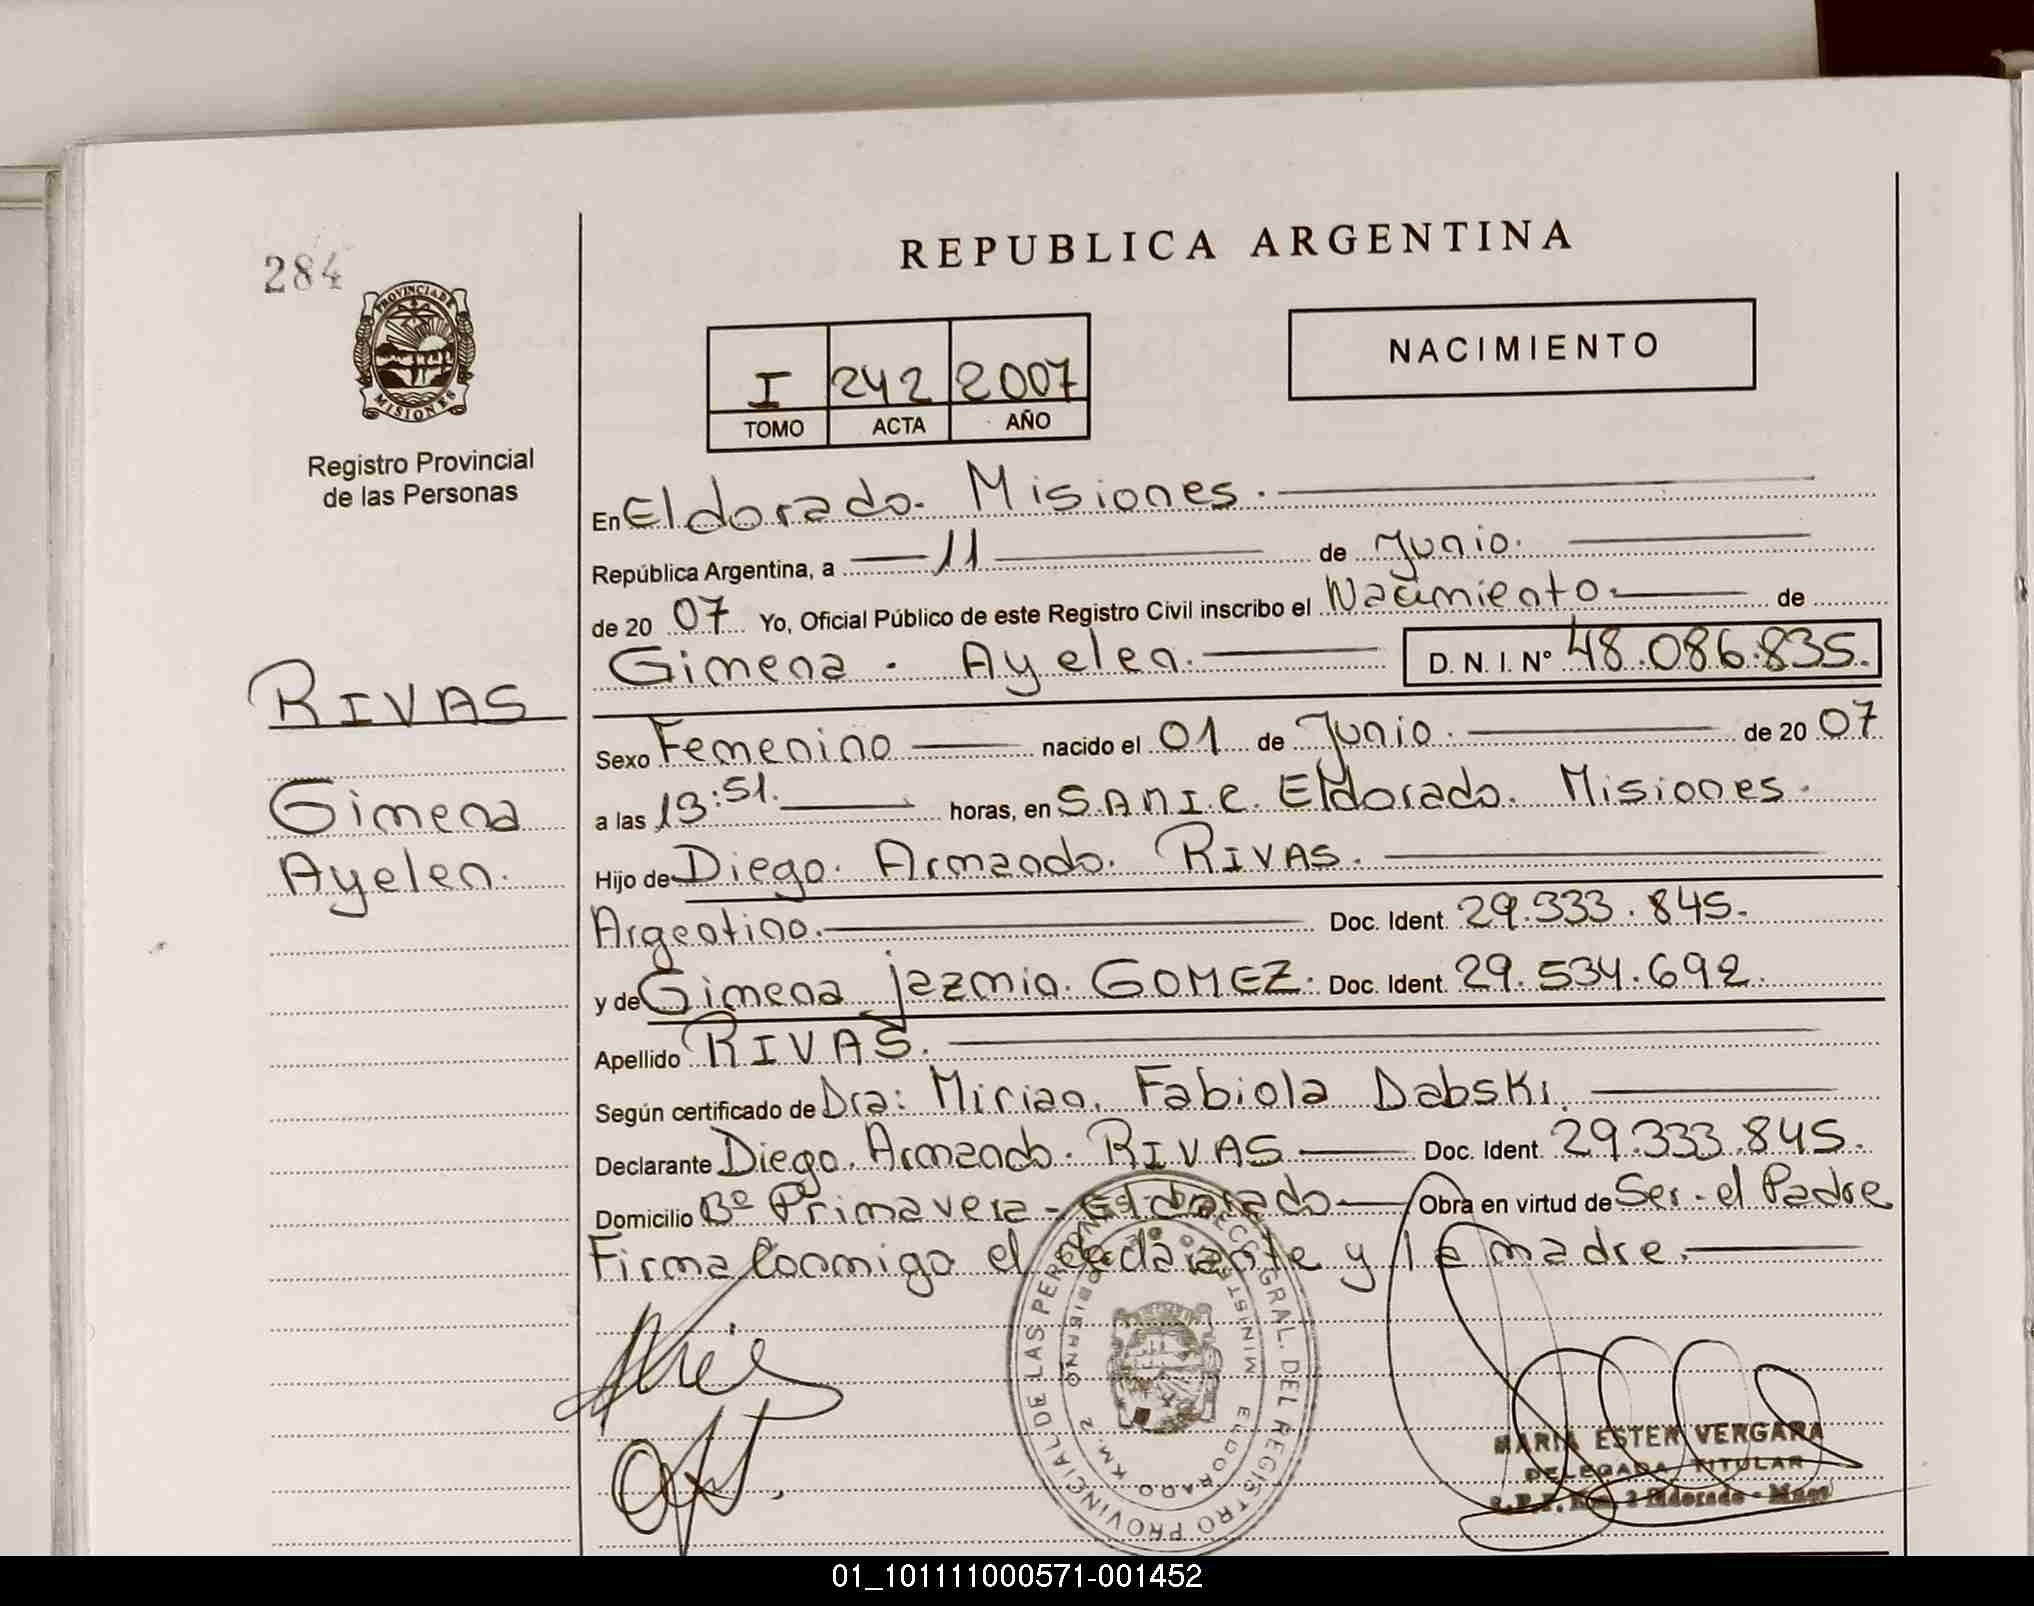 284
PROVINCIA DE
MISIONES
Registro Provincial
de las Personas
REPUBLICA ARGENTINA
I 242 2007
TOMO ACTA AÑO
NACIMIENTO
En Eldorado. Misiones.
República Argentina, a 11 de Junio.
de 20 07 Yo, Oficial Público de este Registro Civil inscribo el Nacimiento de
Gimena. Ayelen. D. N. I. Nº 48.086.835.
RIVAS
Gimena
Ayelen.
Sexo Femenino nacido el 01 de Junio. de 20 07
a las 13:51. horas, en S.A.M.I.C. Eldorado. Misiones.
Hijo de Diego. Armando. RIVAS.
Argentino. Doc. Ident. 29.333.845.
y de Gimena jazmin. GOMEZ. Doc. Ident. 29.534.692.
Apellido RIVAS.
Según certificado de Dra: Mirian. Fabiola Dabski.
Declarante Diego. Armando. RIVAS Doc. Ident. 29.333.845.
Domicilio Bº Primavera - Eldorado Obra en virtud de Ser - el Padre
Firma Conmigo el declarante y la madre.
MARIA ESTER VERGARA
DELEGADA TITULAR
R.P.P. Km. 2 Eldorado - Mnes
01_101111000571-001452